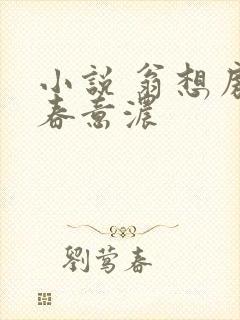 小説 翁想
春意濃
劉莺春